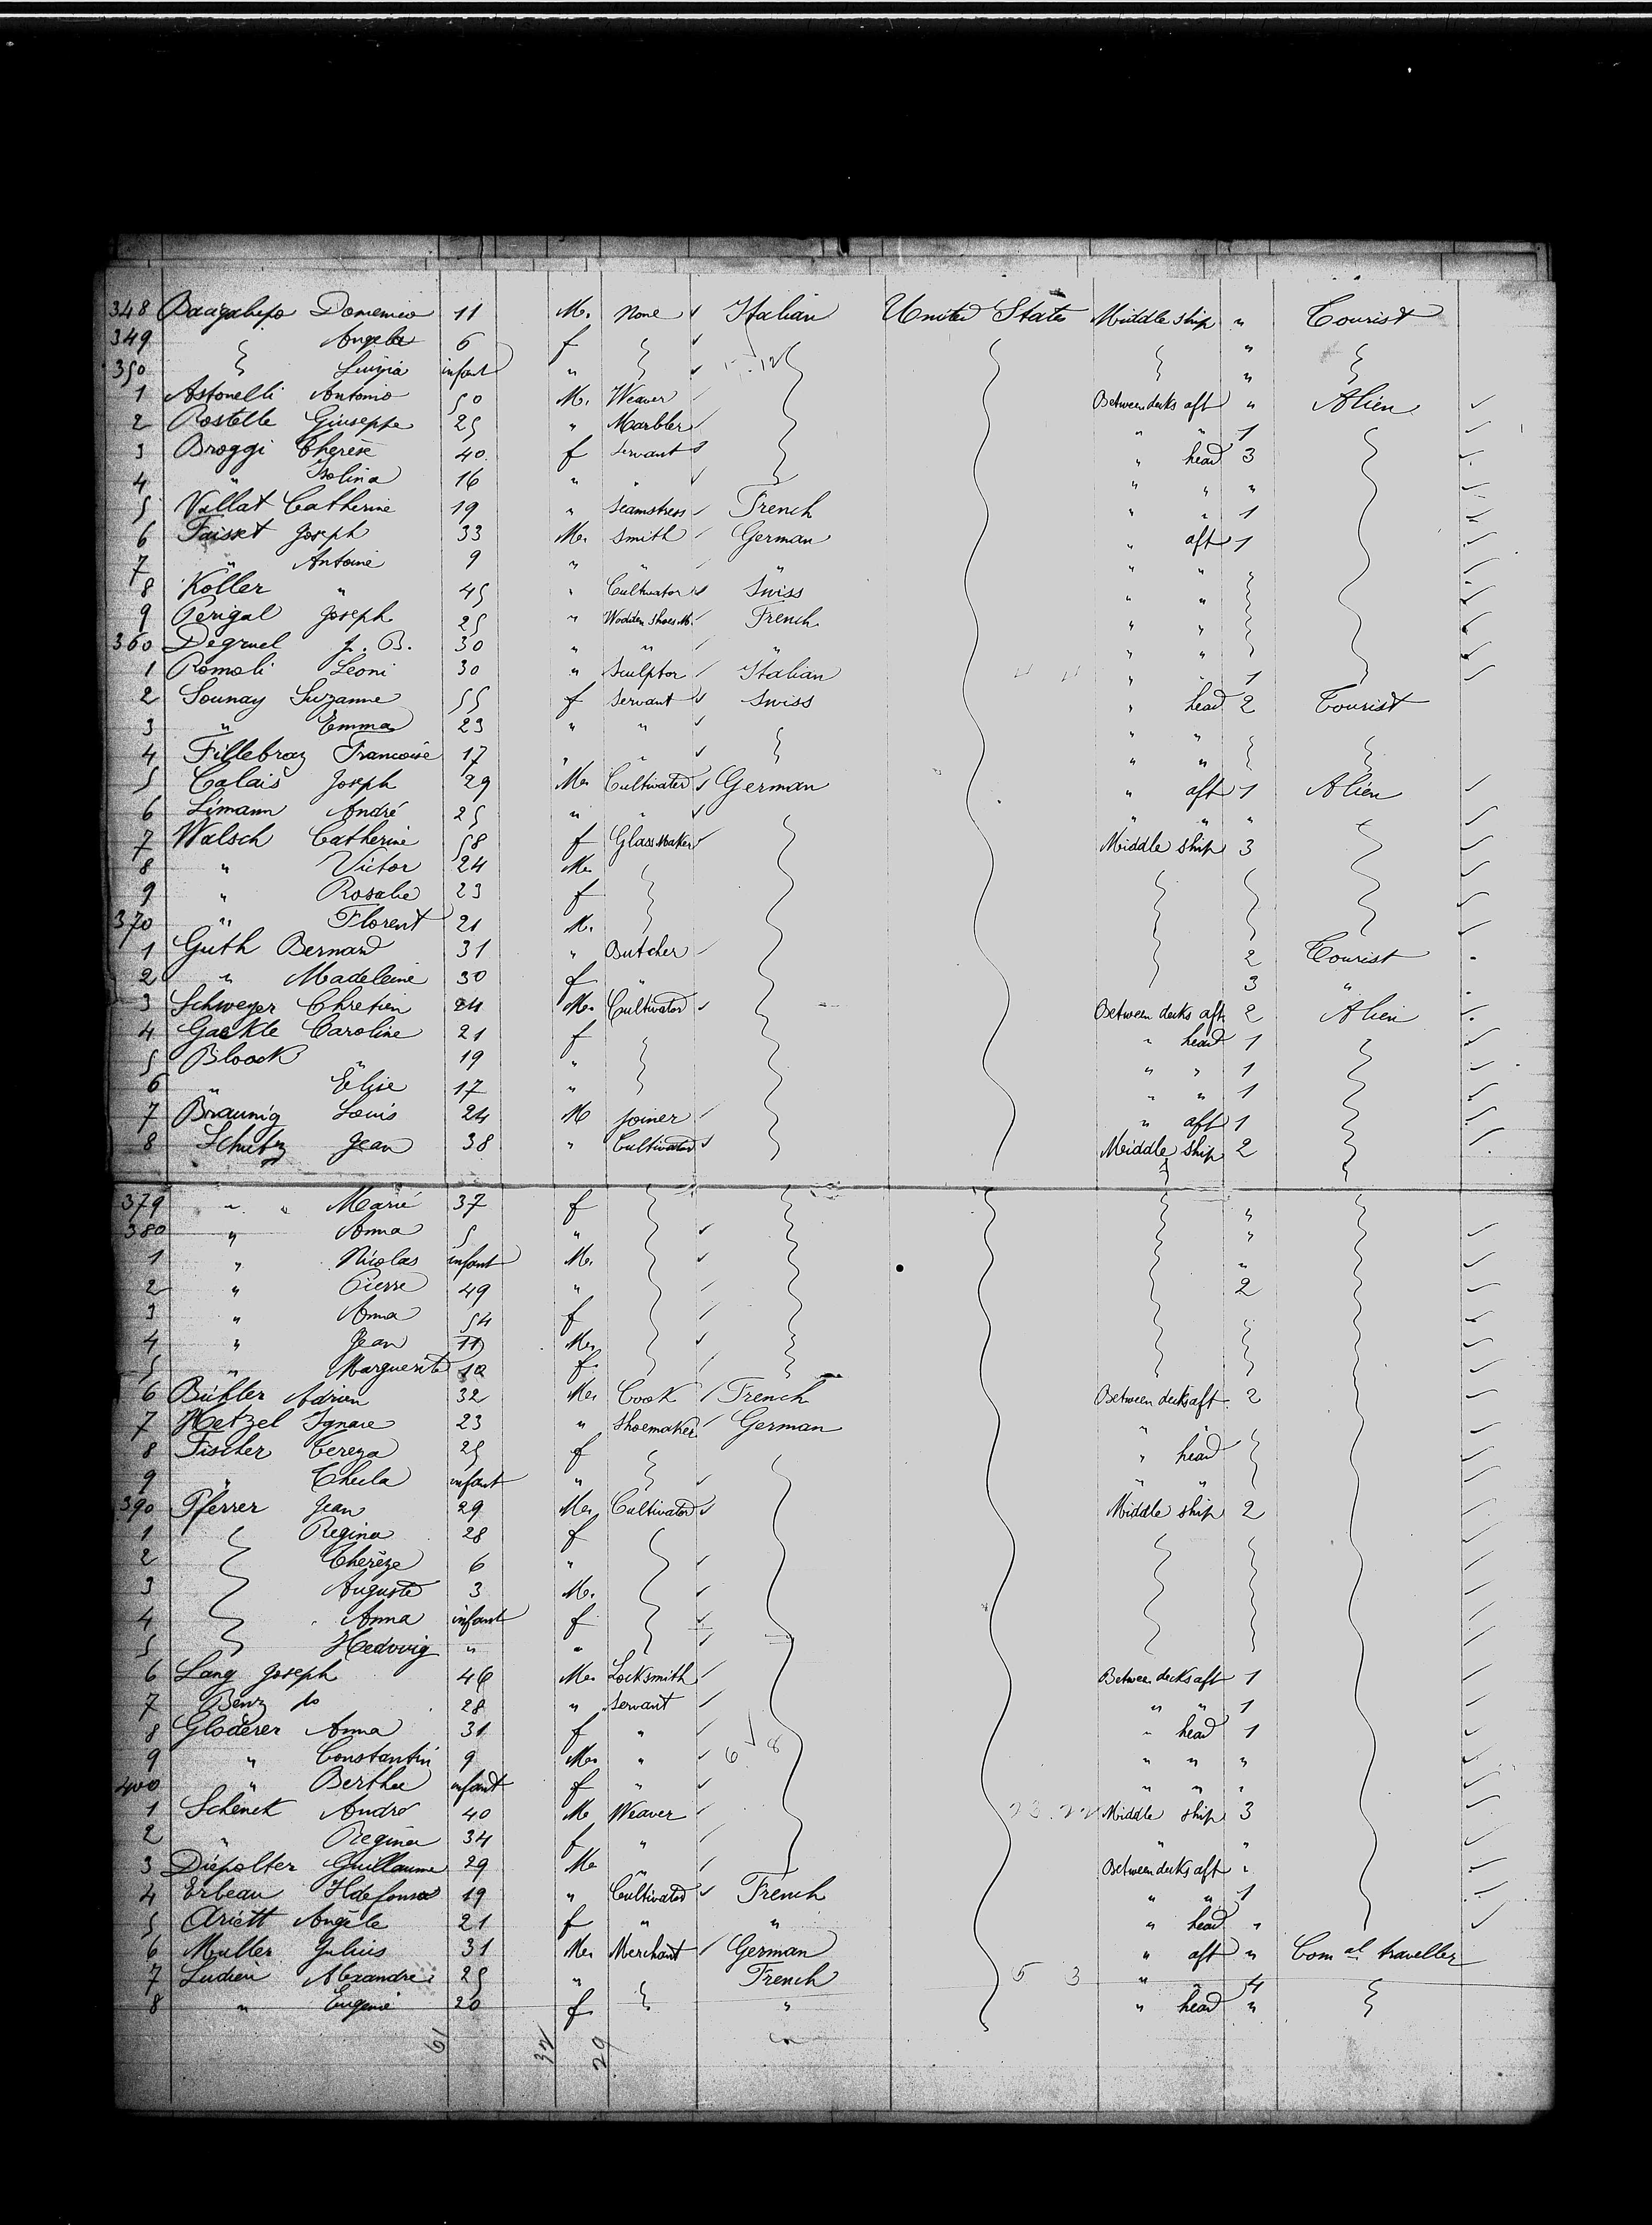 348 Domenico 11 M. None Italian United States Middle ship " Tourist
349 Angela 6 f "
350 Luigia infant " "
1 Astonelli Antonio 50 M. Weaver Between decks aft " Alien
2 Rostelle Giuseppe 25 " Marbler " " 1
3 Broggi Therese 40 f servant " head 3
4 " Isolina 16 " " " " "
5 Vallat Catherine 19 " Seamstress French " " 1
6 Faisset Joseph 33 M. Smith German " aft 1
7 " Antoine 9 " " " " " "
8 Koller " 45 " Cultivator Swiss " "
9 Perigal Joseph 25 " Wodden Shoes M. French " "
360 Degruel J. B. 30 " " " " "
1 Romoli Leoni 30 " Sculptor Italian " 1
2 Sounay Suzanne 55 f Servant Swiss " head 2 Tourist
3 " Emma 23 " " " "
4 Fillebroz Francoise 17 " " " "
5 Calais Joseph 29 M. Cultivator German " aft 1 Alien
6 Limann André 25 " " " " "
7 Walsch Catherine 58 f Glass Maker Middle ship 3
8 " Victor 24 M.
9 " Rosalie 23 f
370 " Florent 21 M.
1 Guth Bernard 31 " Butcher 2 Tourist
2 " Madeleine 30 f " 3 "
3 Schweyer Chretien 24 M. Cultivator Between decks aft 2 Alien
4 Gackle Caroline 21 f " head 1
5 Bloock " 19 " " " 1
6 " Elise 17 " " " 1
7 Braunig Louis 24 M joiner " aft 1
8 Schutz Jean 38 " Cultivator Middle ship 2
379 " " Marie 37 f "
380 " Anna 5 " "
1 " Nicolas infant M. "
2 " Pierre 49 " 2
3 " Anna 54 f
4 " Jean 11 M.
5 " Marguerite 10 f.
6 Buhler Adrien 32 M. Cook French Between decks aft 2
7 Hetzel Ignace 23 " Shoemaker German " "
8 Fischer Tereza 25 f " head
9 " Thecla infant " " "
390 Pferrer Jean 29 M. Cultivator Middle ship 2
1 Regina 28 f
2 Thereze 6 "
3 Auguste 3 M.
4 Anna infant f
5 Hedwig " "
6 Lang Joseph 46 M. Locksmith Between decks aft 1
7 Benz do 28 " Servant " " 1
8 Gloderer Anna 31 f " " head 1
9 " Constantin 9 M. " 6 8 " " "
400 " Berthe infant f " " " "
1 Schenck André 40 M Weaver 23.22 Middle ship 3
2 " Regina 34 f " " "
3 Diepolter Guillaume 29 M. " Between decks aft "
4 Erbeau Ildefonse 19 " Cultivator French " " 1
5 Ariett Angèle 21 f " " " head "
6 Muller Julius 31 M. Merchant German " aft " Com al traveller
7 Ludien Alexandre 25 " French 5 3 " " 4
8 " Eugenie 20 f " " head "
61 32 29